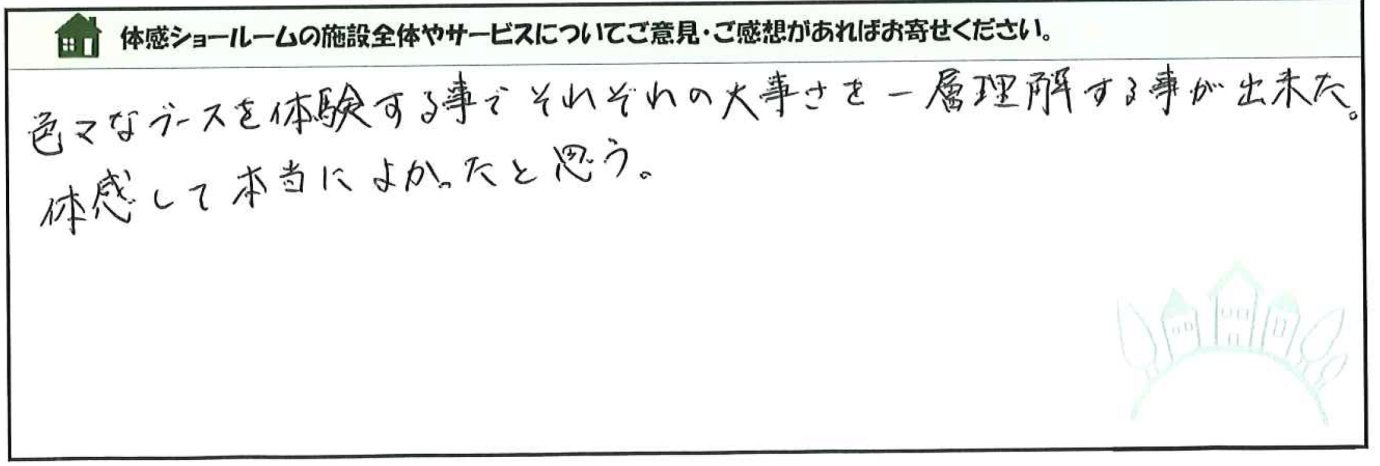 体感ショールームの施設全体やサービスについてご意見・ご感想があればお寄せください。
色々なブースを体験する事でそれぞれの大事さを一層理解する事が出来た。
体感して本当によかったと思う。